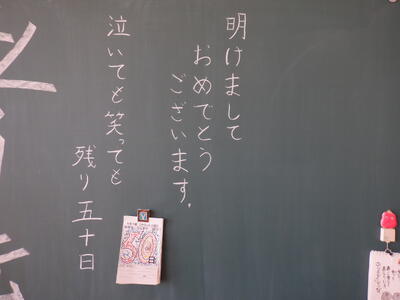 明けまして
おめでとう
ございます。
泣いても笑っても
残り五十日
50
日